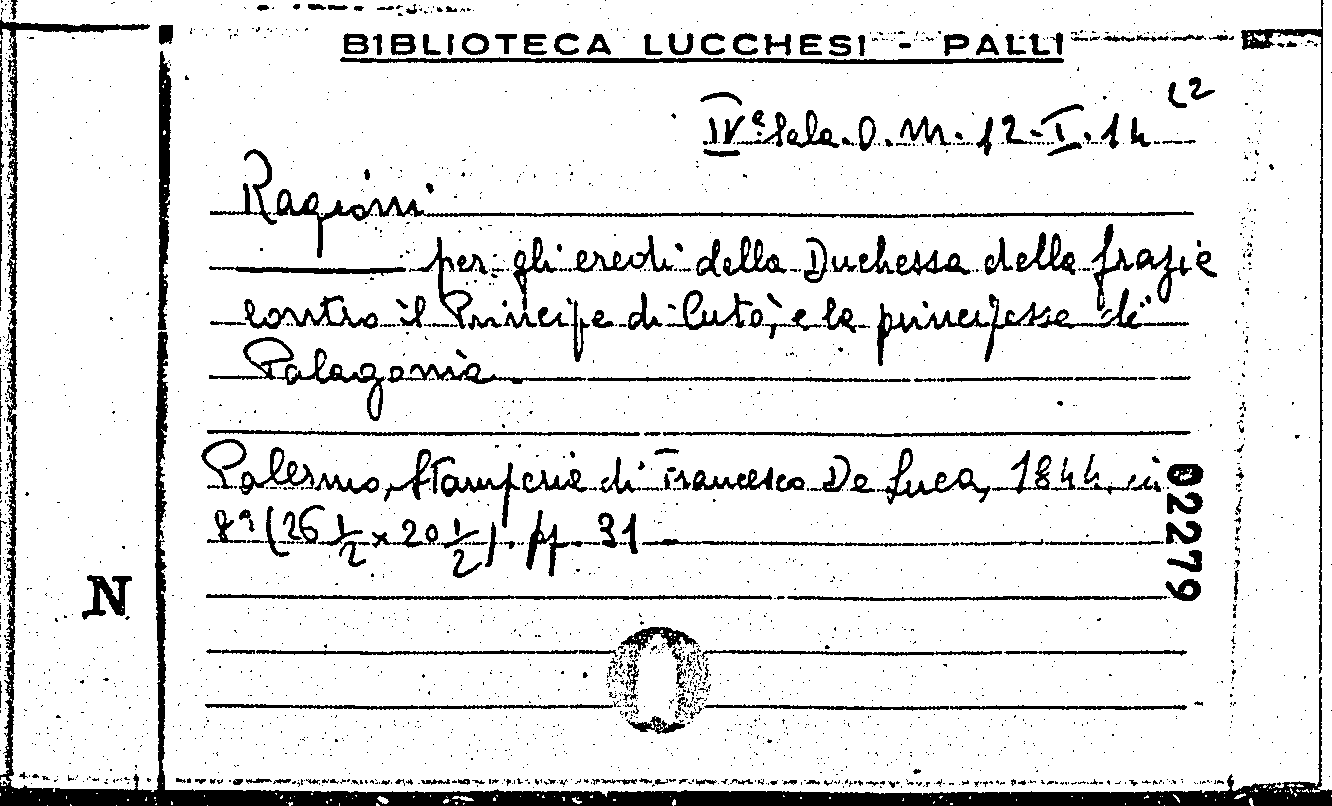 BIBLIOTECA LUCCHESI - PALLI
IVª Sala. O. M. 12. I. 14
Ragioni
per gli eredi della Duchessa delle Grazie
contro il Principe di Cutò, e la principessa di
Palagonia.
Palermo, Stamperia di Francesco De Luca, 1844. in
8º (26 1/2 x 20 1/2). pp. 31
02279
N